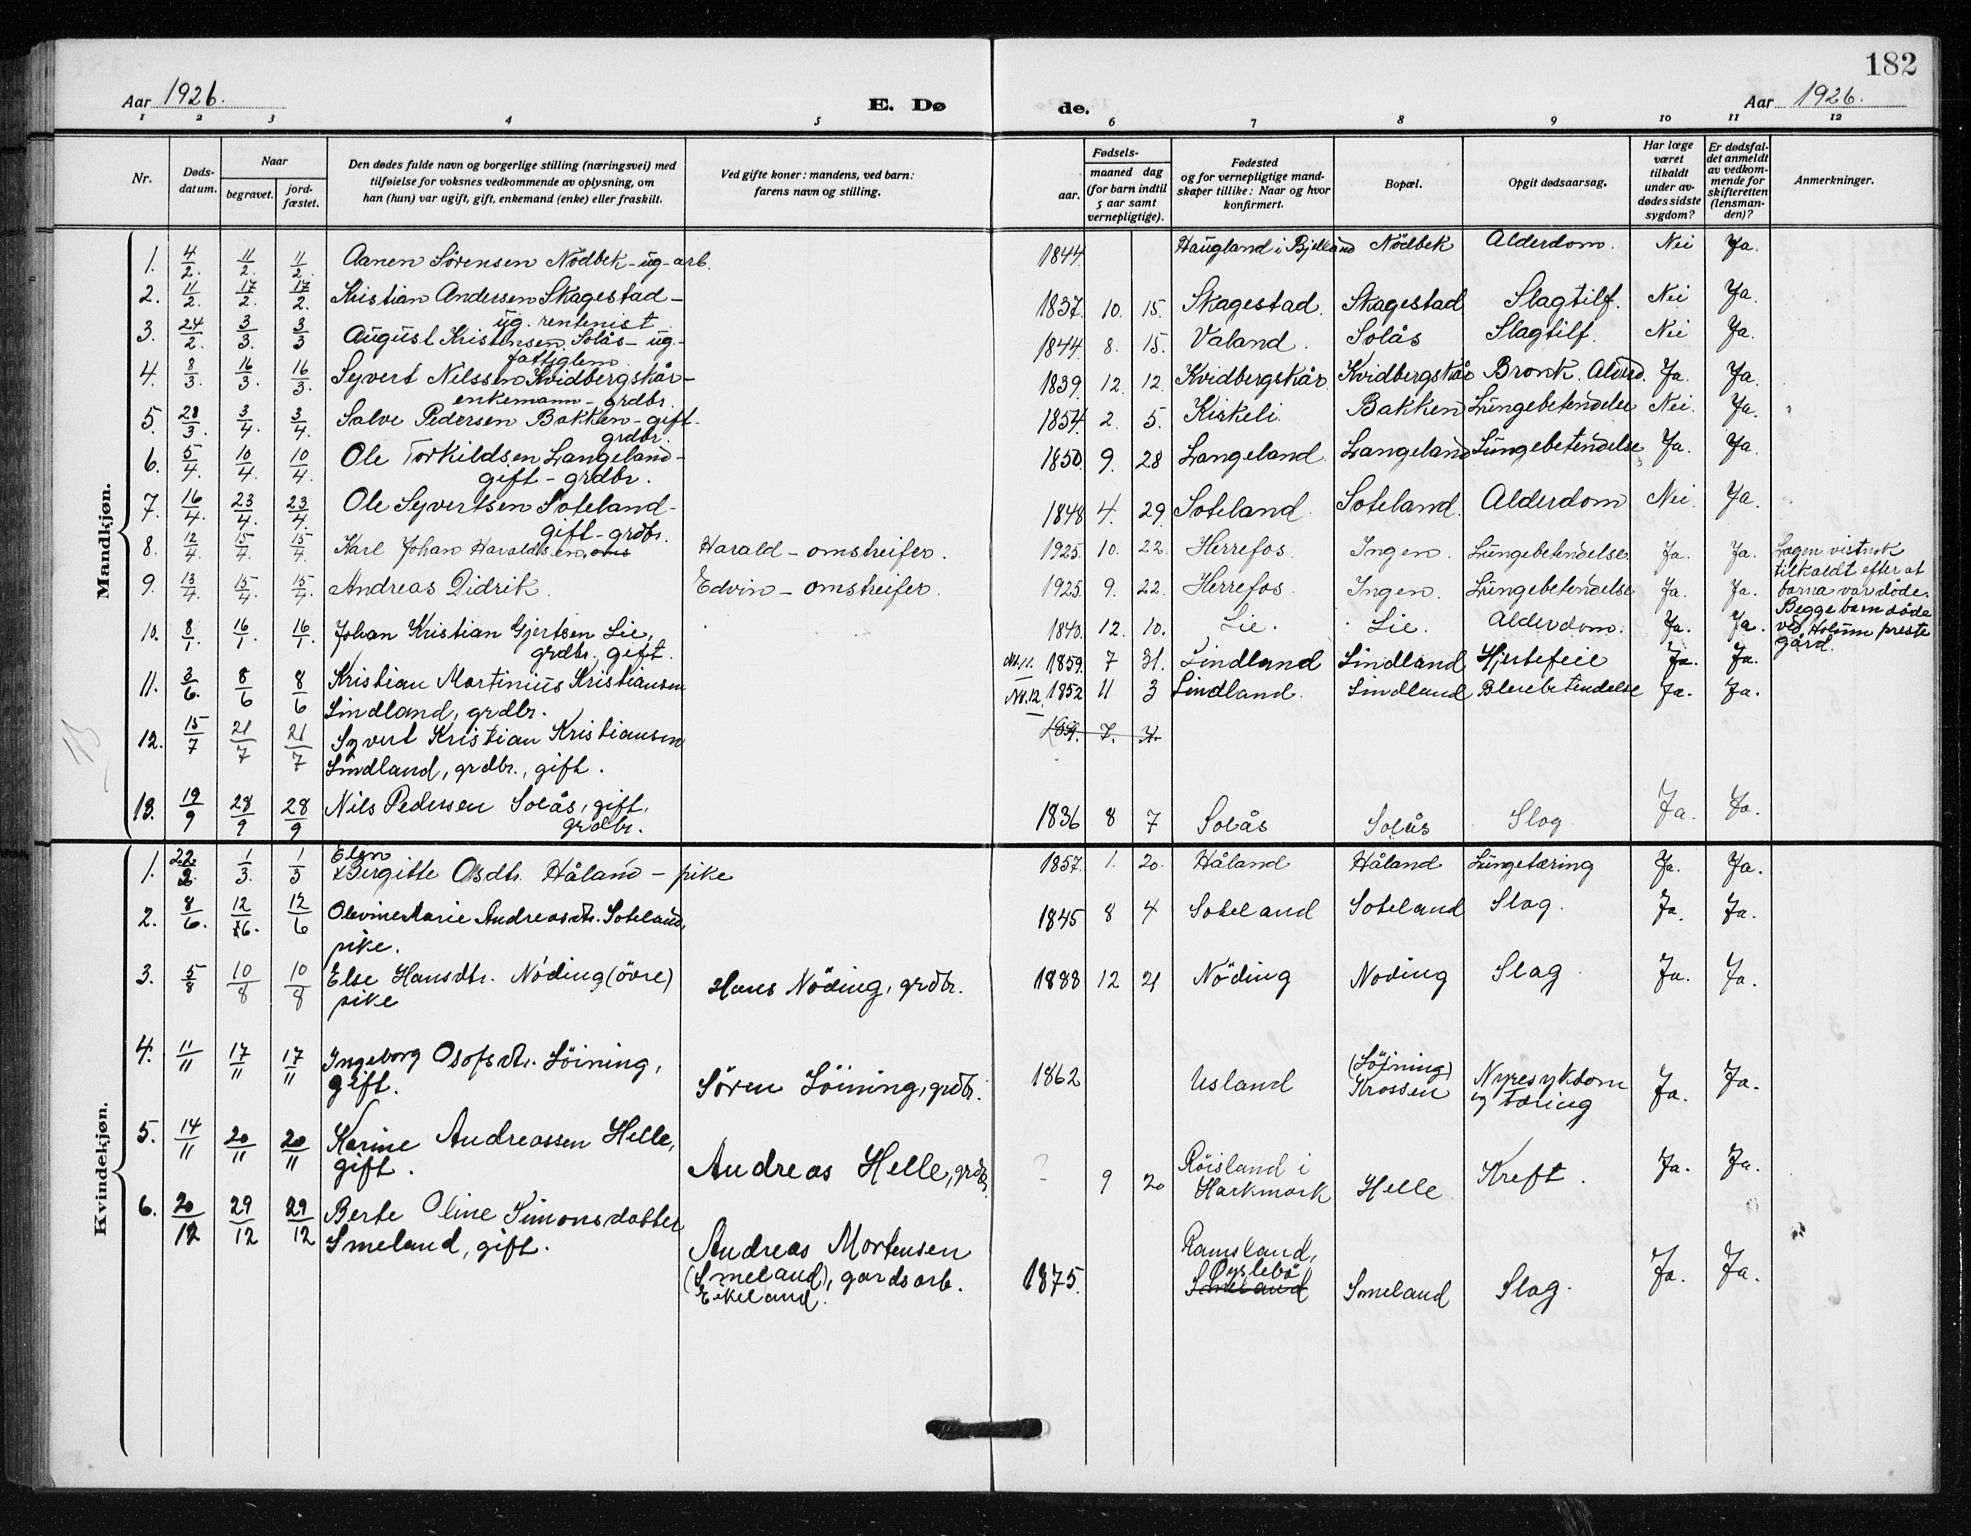 182
Aar 1926. E. Dø de. Aar 1926.
1 2 3 4 5 6 7 8 9 10 11 12
Nr. Døds-datum. Naar begravet. jord-fæstet. Den dødes fulde navn og borgerlige stilling (næringsvei) med tilføielse for voksnes vedkommende av oplysning, om han (hun) var ugift, gift, enkemand (enke) eller fraskilt. Ved gifte koner: mandens, ved barn: farens navn og stilling. Fødsels- aar. maaned dag (for barn indtil 5 aar samt vernepligtige). Fødested og for vernepligtige mand-skaper tillike: Naar og hvor konfirmert. Bopæl. Opgit dødsaarsag. Har læge været tilkaldt under av-dødes sidste sygdom? Er dødsfal-det anmeldt av vedkom-mende for skifteretten (lensman-den)? Anmerkninger.
Mandkjøn.
1. 4/2. 11/2. 11/2. Aanen Sörensen Nödbek - ug - arb. 1844. Haugland i Bjelland Nödbek Alderdom. Nei Ja.
2. 11/2. 17/2. 17/2. Kristian Andersen Skagestad - ug. rentenist 1837. 10. 15. Skagestad Skagestad Slagtilf. Nei Ja.
3. 24/2. 3/3. 3/3 August Kristensen Solås - ug - fattiglem. 1844. 8. 15. Valand. Solås Slagtilf. Nei Ja.
4. 8/3. 16/3. 16/3. Syvert Nilssen Kvidbergskår - enkemann - grdbr. 1839. 12. 12. Kvidbergskår Kvidbergskår Bronk. Alderd. Ja. Ja.
5. 28/3. 3/4. 3/4. Salve Pedersen Bakken - gift - grdbr. 1854. 2. 5. Kirkeli Bakken Lungebetendelse Nei. Ja.
6. 5/4. 10/4. 10/4. Ole Torkildsen Langeland - gift - grdbr. 1850. 9. 28 Langeland. Langeland Lungebetendelse Ja. Ja.
7. 16/4. 23/4. 23/4. Ole Syvertsen Soteland - gift - grdbr. 1848 4. 29. Soteland. Soteland. Alderdom Nei Ja.
8. 12/4. 15/4. 15/4. Karl Johan Haraldsen, oms Harald - omstreifer. 1925. 10. 22. Herrefos. Ingen. Lungebetendelse. Ja. Ja. Lægen vistnok tilkaldt efter at
9. 13/4. 15/4. 15/4. Andreas Didrik. Edvin - omstreifer. 1925. 9. 22. Herrefos. Ingen. Lungebetendelse Ja. Ja. barna var döde. Begge barn döde
10. 8/1. 16/1. 16/1. Johan Kristian Gjertsen Lie, grdbr. gift. 1840. 12. 10. Lie. Lie. Alderdom. Ja. Ja. ved Holum preste gård.
11. 3/6. 8/6 8/6 Kristian Martinius Kristiansen Lindland, grdbr. Nr. 11. 1859. 7 31. Lindland Lindland Hjertefeil Ja. Ja.
12. 15/7 21/7 21/7 Syvert Kristian Kristiansen Lindland, grdbr., gift. Nr. 12. 1852 11 3 Lindland. Lindland Blærebetendelse Ja. Ja.
7. 31.
13
13. 19/9 28/9 28/9 Nils Pedersen Solås, gift, grdbr. 1836 8 7 Solås Solås Slag Ja. Ja.
Kvindekjøn.
1. 22/2. 1/3. 1/3 Elen Birgitte Osdtr. Håland - pike 1857. 1. 20. Håland Håland Lungetæring Ja. Ja.
2. 8/6. 12/6. 12/6 Olevine Marie Andreasdtr. Soteland, pike. 1845 8 4 Soteland Soteland Slag. Ja. Ja.
3. 5/8 10/8 10/8 Else Hansdtr. Nöding (övre) pike Hans Nöding, grdbr. 1888 12 21 Nöding Nöding Slag Ja. Ja.
4. 11/11 17/11 17/11 Ingeborg Olofsdtr. Löining, gift. Sören Löining, grdbr. 1862 Usland (Löining) Krossen Nyresykdom og tæring Ja. Ja.
5. 14/11 20/11 20/11 Karine Andreassen Helle, gift. Andreas Helle, grdbr. ? 9 20 Röisland i Harkmark Helle Kreft. Ja. Ja.
6. 20/12 29/12 29/12 Berte Oline Simonsdatter Smeland, gift. Andreas Mortensen (Smeland), gårdsarb. Eikeland. 1875. Ramsland, Öyslebö Smeland Smeland Slag. Ja. Ja.